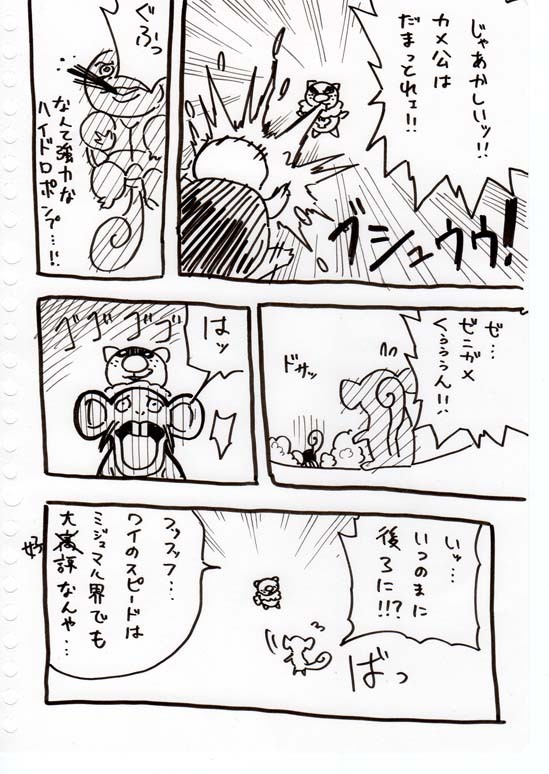 じゃあかしいッ!!
カメ公は
だまっとれェ!!
ブシュウウ!
ぐふっ
なんて強力な
ハイドロポンプ…!!
ゼ…
ゼニガメ
くぅぅぅん!!
ドサッ
はッ
ゴゴゴゴ
いッ…
いつのまに
後ろに!!?
ばっ
フッフッフ…
ワイのスピードは
ミジュマル界でも
大好評なんや…